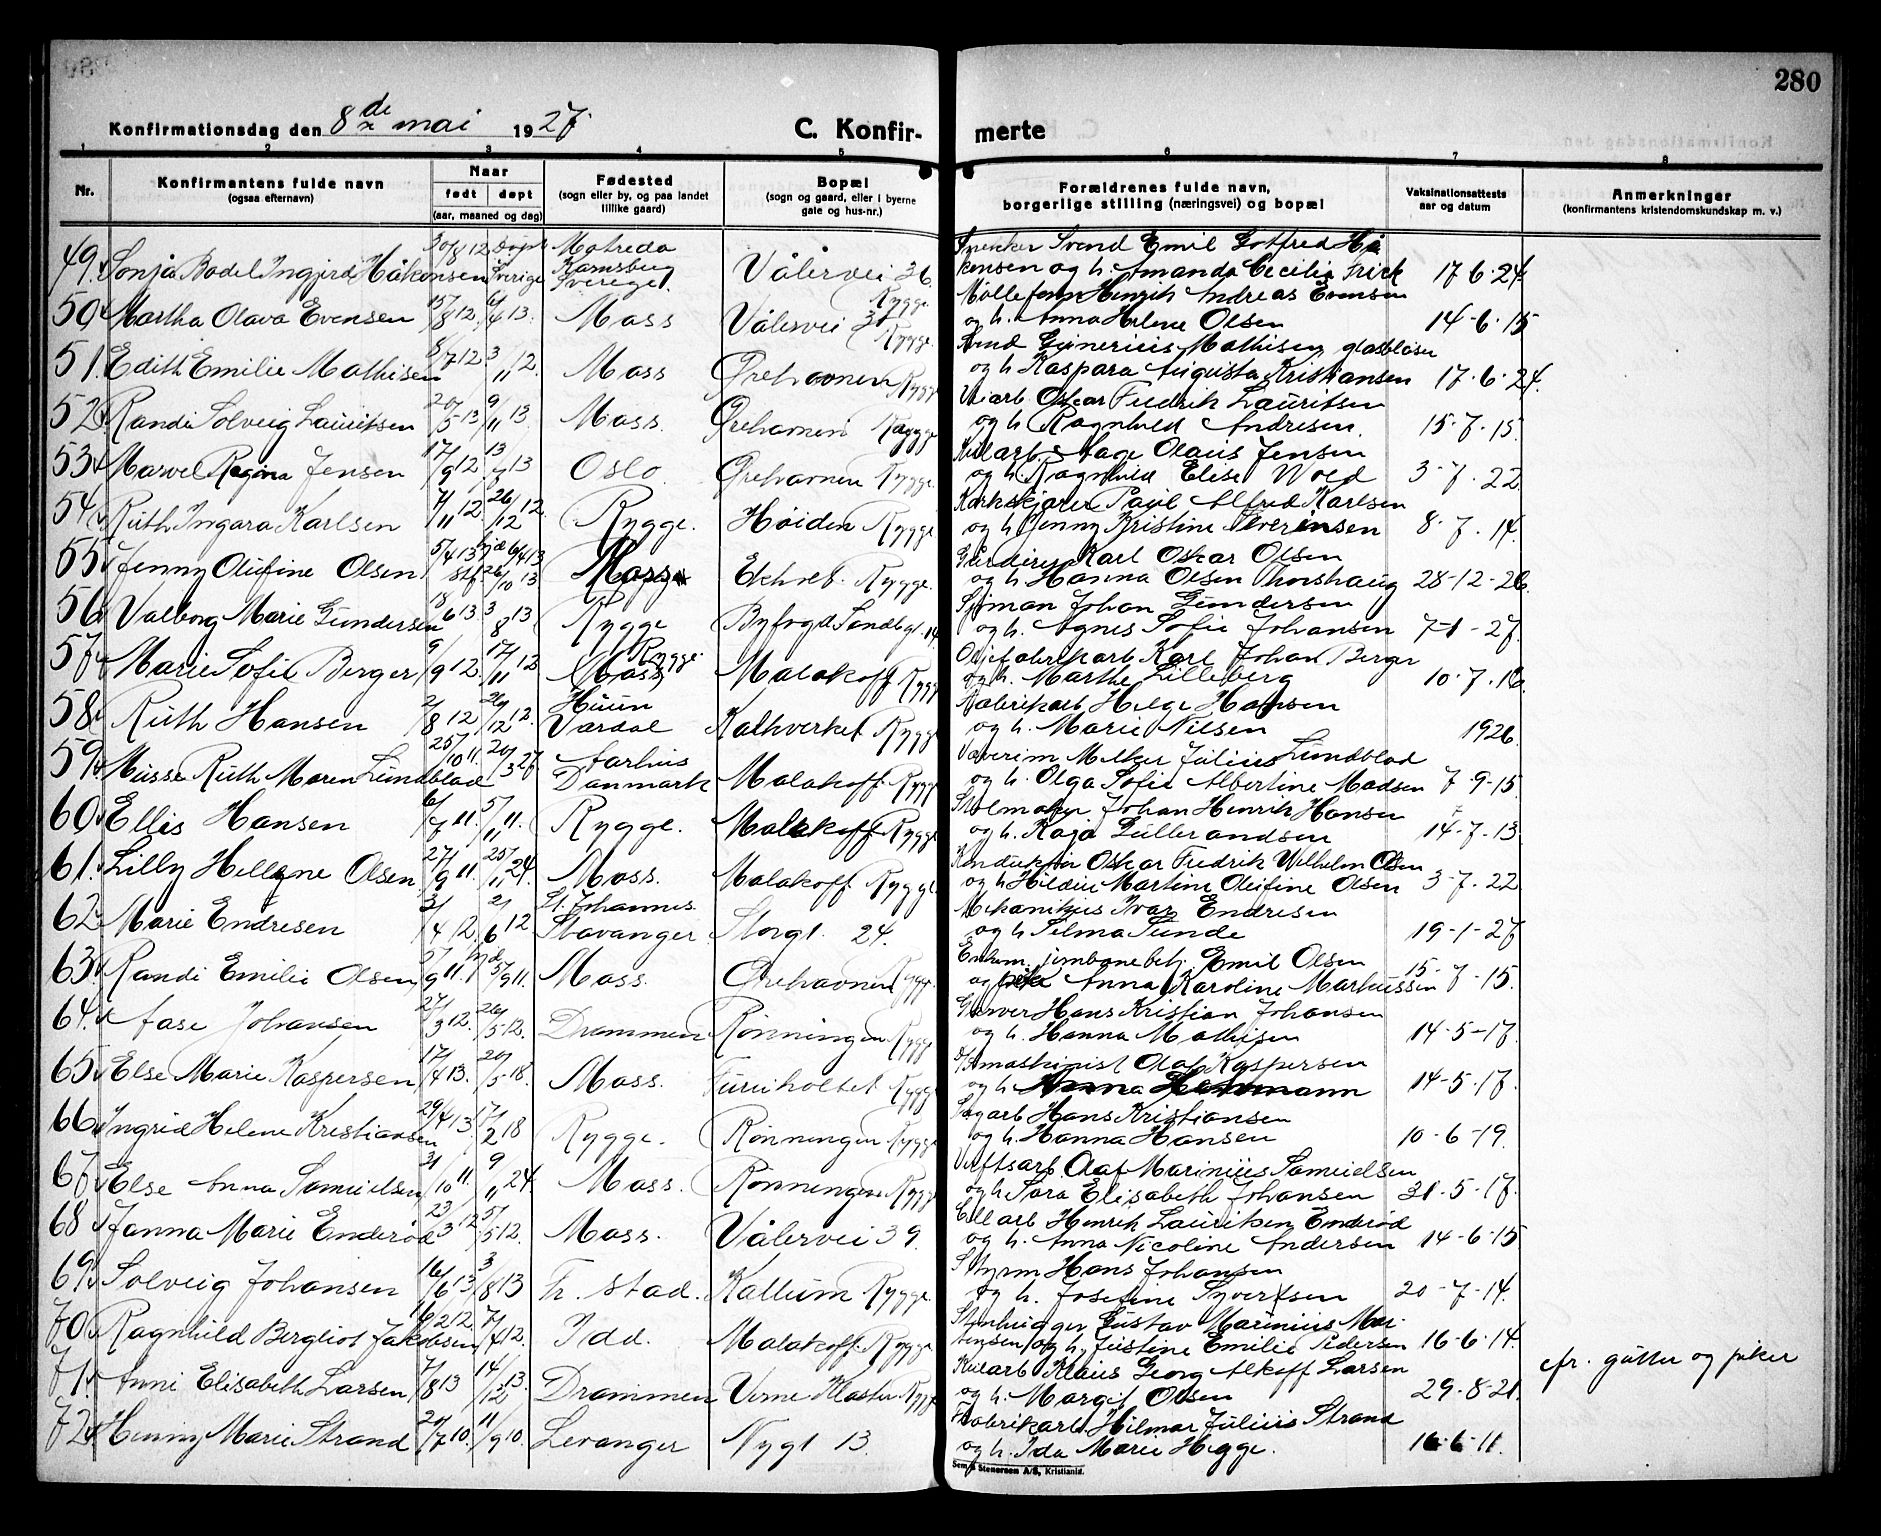 280
Konfirmationsdag den 8de mai 1927.
C. Konfirmerte
1 2 3 4 5 6 7 8
Nr.
Konfirmantens fulde navn
(ogsaa efternavn)
Naar
født døpt
(aar, maaned og dag)
Fødested
(sogn eller by, og paa landet
tillike gaard)
Bopæl
(sogn og gaard, eller i byerne
gate og hus-nr.)
Forældrenes fulde navn,
borgerlige stilling (næringsvei) og bopæl
Vaksinationsattests
aar og datum
Anmerkninger
(konfirmantens kristendomskundskap m. v.)
49. Sonja Bodel Ingjerd Håkonsen 30/8 12 Døpt Sverige Ramsberg Sverige Vålervei 36 Rygge Snekker Svend Emil Gotfred Hå
konsen og h. Amanda Cecilie Frick 17-6-24
50 Martha Olava Evensen 15/8 12. 6/4 13. Moss Vålervei Rygge Henrik Andreas Evensen
og h. Anna Helene Olsen 14-6-15
51. Edith Emilie Mathisen 8/7 12 3/11 12. Moss Ørehavnen Rygge Mathisen, glasblåser
og h. Kaspara Augusta Kristiansen 17-6-24.
52 Randi Solveig Lauritsen 20/5 13 9/11 13 Moss. Ørehavnen Rygge Oskar Fredrik Lauritsen
og h. Ragnhild Andresen. 15-7-15.
53 Marvel Ragna Jensen 17/9 12 13/7 13 Oslo. Ørehavnen Rygge. Aage Olaus Jensen
og h. Ragnhild Elise Wold 3-7-22
54 Ruth Ingara Karlsen 7/11 12 26/12 12. Rygge. Høiden Rygge Paul Alfred Karlsen
og h. Jenny Kristine Severinsen 8-7-14.
55 Jenny Olufine Olsen 5/4 13 hjd 6/4 13 26/10 13 Moss Ekholt. Rygge. Karl Oskar Olsen
og h. Hanna Olsen Thorshaug 28-12-26.
56 Valborg Marie Gundersen 18/6 13. 3/8 13 Rygge Byfogd Sandbgt. 14. Sjøman Johan Gundersen
og h. Agnes Sofie Johansen 7-1-27.
57 Marie Sofie Berger 9/9 12. 17/11 12 Rygge Moss Malakoff Rygge Karl Johan Berger
og h. Marthe Lilleberg 10-7-16.
58 Ruth Hansen 2/8 12 26/12 12. Hunn Vardal Kalkverket Rygge Fabrikarb Helge Hansen
og h. Marie Nilsen 1926.
59 Musse Ruth Maren Lundblad 25/10 11. 20/3 27 Aarhus Danmark Malakoff Rygge Melker Julius Lundblad
og h. Olga Sofie Albertine Madsen 7-9-15.
60 Ellis Hansen 6/7 11. 5/11 11. Rygge. Malakoff Rygge Stolmaker Johan Henrik Hansen
og h. Kaja Gullerandsen 14-7-13.
61. Lilly Hellene Olsen 27/9 11. 25/11 24. Moss. Malakoff Rygge Konduktør Oskar Fredrik Wilhelm Olsen
og h Hildur Martine Olufine Olsen 3-7-22
62 Marie Endresen 3/4 12. 2/6 12 St. Johannes Stavanger Storgt. 24. Mekanikus Ivar Endresen
og h Selma Sunde 19-1-27
63 Randi Emilie Olsen 5/9 11. hjd 5/9 11. Moss. Ørehavnen Rygge Enkem. jernbanebetj. Emil Olsen
og Anna Karoline Markussen 15-7-15.
64. Aase Johansen 27/3 12. 26/5 12. Drammen Rønningen Rygge Garver Hans Kristian Johansen
og h. Hanna Mathisen 14-5-17.
65 Else Marie Kaspersen 17/4 13. 20/5 18. Moss. Fureholtet Rygge maskinist Olaf Kaspersen
og h Anna Hermann 14-5-17.
66 Ingrid Helene Kristiansen 29/4 13. 17/2 18 Rygge. Rønningen Rygge Sagarb Hans Kristiansen
og h. Hanna Hansen 10-6-19.
67 Else Anna Samuelsen 31/10 11. 9/11 24. Moss. Rønningen Rygge Verftsarb. Olaf Marinius Samuelsen
og h Sara Elisabeth Johansen 31-5-17.
68 Janna Marie Enderød 23/3 12 5/5 12. Moss. Vålervei 39. Cell.arb Henrik Lauritsen Enderød
og h. Anna Nicoline Andersen 14-6-15
69 Solveig Johansen 16/6 13 3/8 13 Fr. stad. Kallum Rygge. Styrm Hans Johansen
og h. Josefine Syvertsen 20-7-14.
70 Ragnhild Bergliot Jakobsen 16/2 12. 7/4 12. Idd. Malakoff. Rygge Stenhugger Gustav Marinius Mar-
tensen og h. Justine Emilie Pedersen 16-6-14.
71. Anni Elisabeth Larsen 7/8 13 14/12 13. Drammen Verne Kloster Rygge Klaus Georg Alkoff Larsen
og h. Margit Olsen 29-8-21. cfr. gutter og piker
72 Henny Marie Strand 20/7 10. 11/9 10. Levanger Nygt 13. Fabrikarb. Hilmar Julius Strand
og h. Ida Marie Hegge. 16-6-11.
Sem & Stenersen A/S, Kristiania.